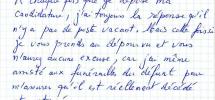 A chaque fois que je dépose ma
candidature, j'ai toujours la réponse qu'il
n'y a pas de poste vacant. Mais cette fois-ci
je vous prends au dépourvu et vous
n'aurez aucune excuse, car j'ai même
assisté aux funérailles du défunt pour
m'assurer qu'il est réellement décédé